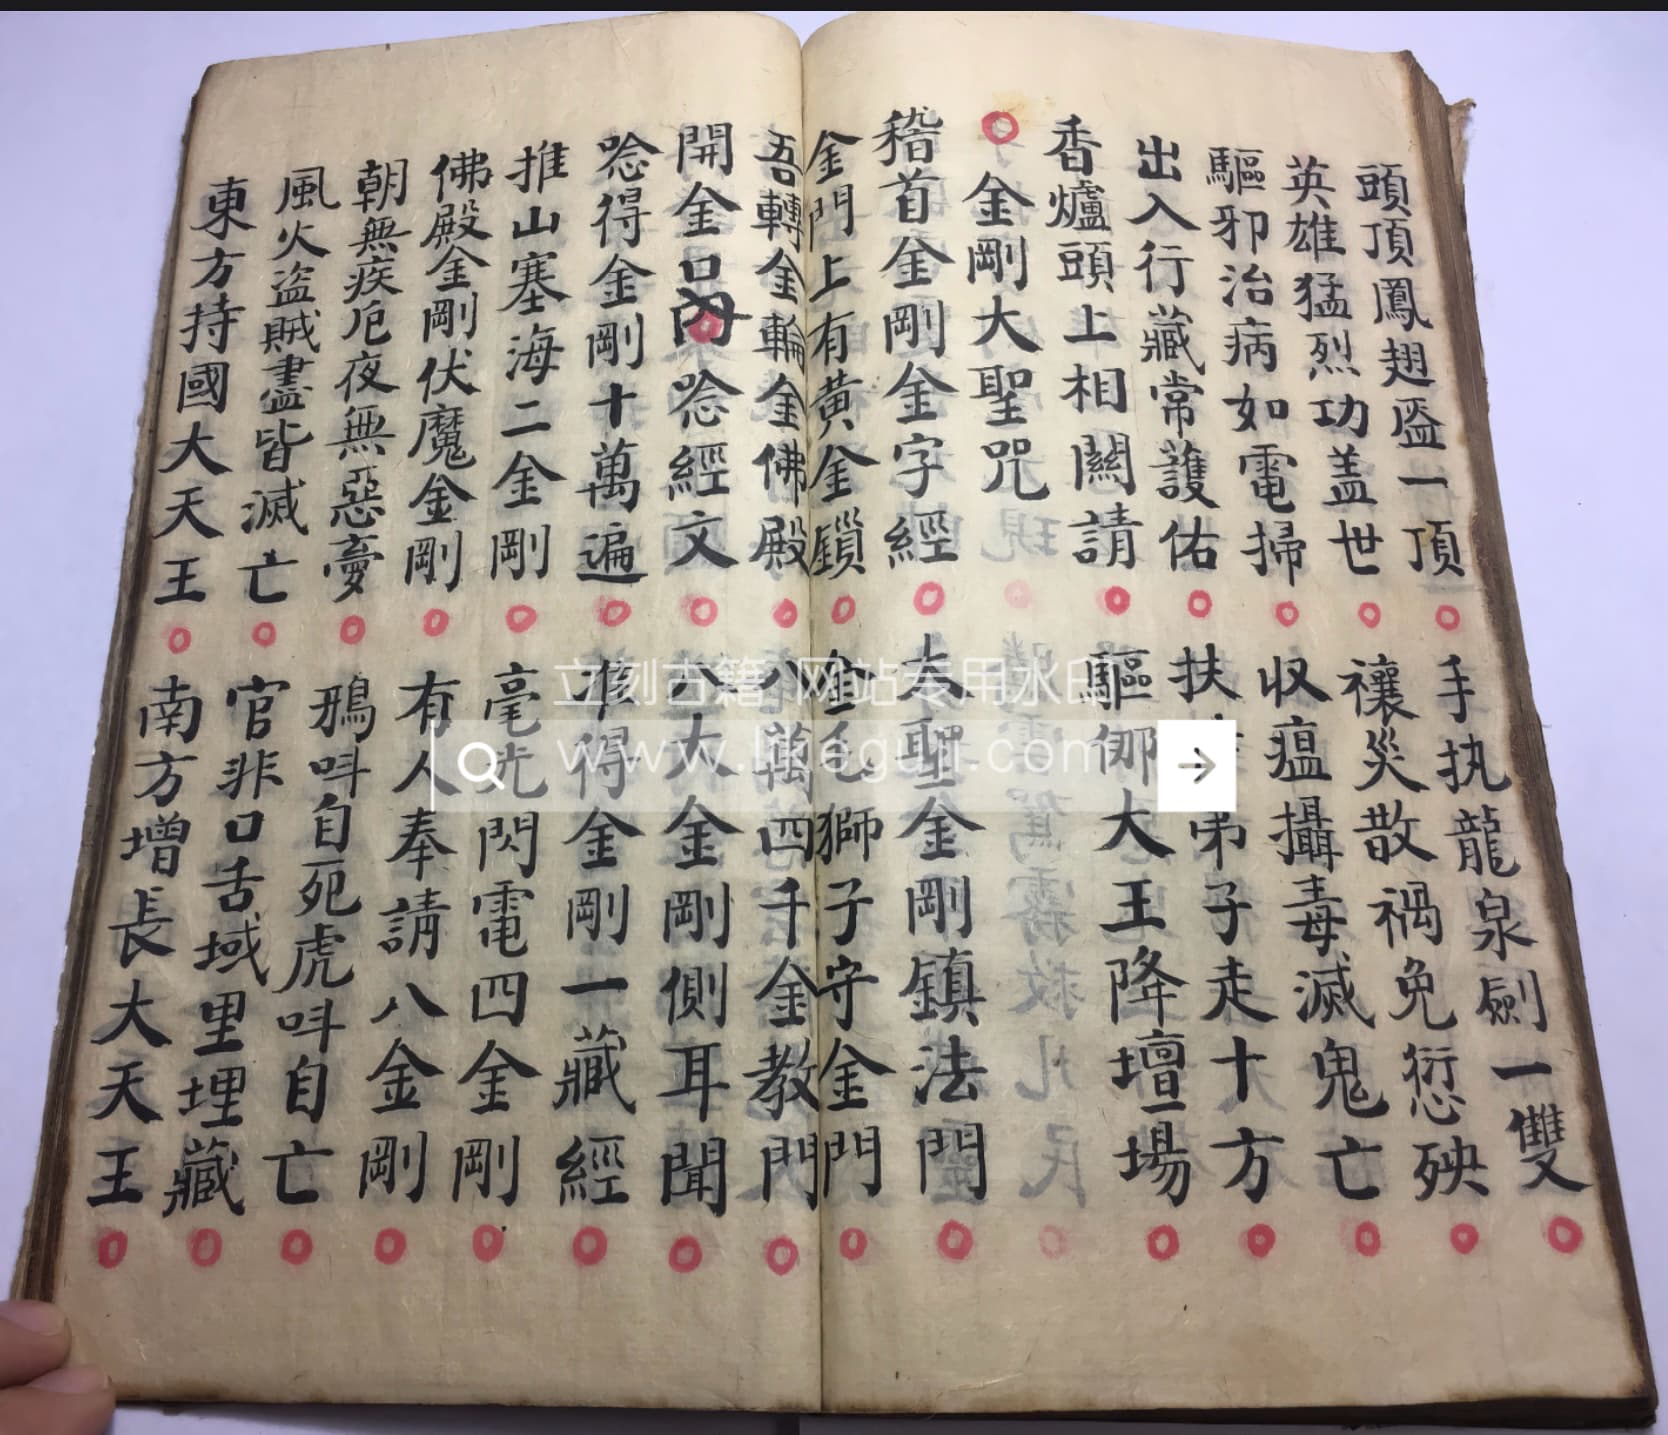 頭頂鳳翅盔一頂 手执龍泉劍一雙
英雄猛烈功盖世 禳災散禍免愆殃
驅邪治病如電掃 収瘟攝毒滅鬼亡
出入行藏常護佑 扶 弟子走十方
香爐頭上相關請 驅邪大王降壇場
金剛大聖咒
稽首金剛金字經 大聖金剛鎮法門
金門上有黃金鎖 金毛獅子守金門
吾轉金輪金佛殿 八萬四千金教門
開金口內唸經文 八大金剛側耳聞
唸得金剛十萬遍 准得金剛一藏經
推山塞海二金剛 毫光閃電四金剛
佛殿金剛伏魔金剛 有人奉請八金剛
朝無疾厄夜無惡夢 鴉呌自死虎呌自亡
風火盗賊盡皆滅亡 官非口舌域里埋藏
東方持國大天王 南方增長大天王
立刻古籍 网站专用水印
www.likeguji.com